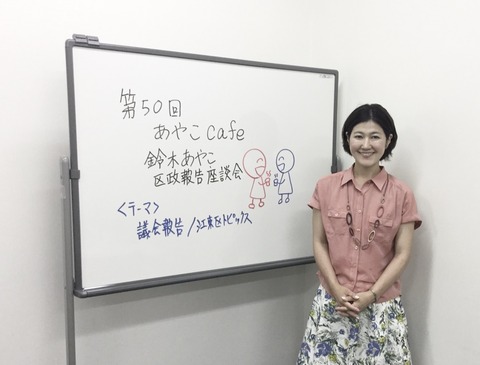 第50回
あやこcafe
鈴木あやこ
区政報告座談会
<テーマ>
議会報告/江東区トピックス